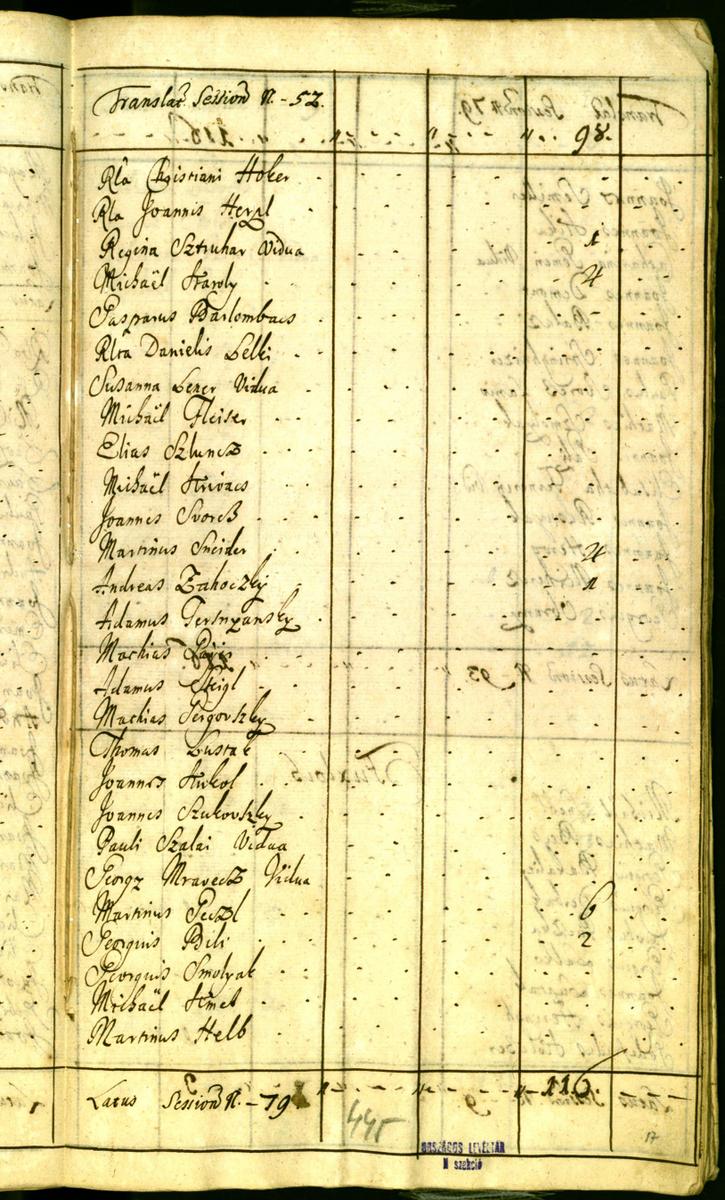 Translat. Session N. - 52.
" - - " - - " - - 98.
Rta Christiani Hoker
Rta Joannis Herpl
Regina Sztruhar Vidua 1
Michaël Karoly 4
Gasparus Barlombacs
Rlta Danielis Lelki
Susanna Lener Vidua
Michaël Fleiser
Elias Szluncz
Michaël Krivacs
Joannes Svorcz
Martinus Sneider 4
Andreas Zahoczky 1
Adamus Tersnyansky
Machias
Adamus Steigl
Machias Gergovszky
Thomas Lustak
Joannes Kukol
Joannes Szukovszky
Pauli Szalai Vidua
Georgy Mravecz Vidua
Martinus Peczl 6
Georgius Bili 2
Georguis Smolyak
Michaël Kmet
Martinus Helb
Latus Session N. - 79 " - - " - - " 116.
445
ORSZÁGOS LEVÉLTÁR
N szekció
17